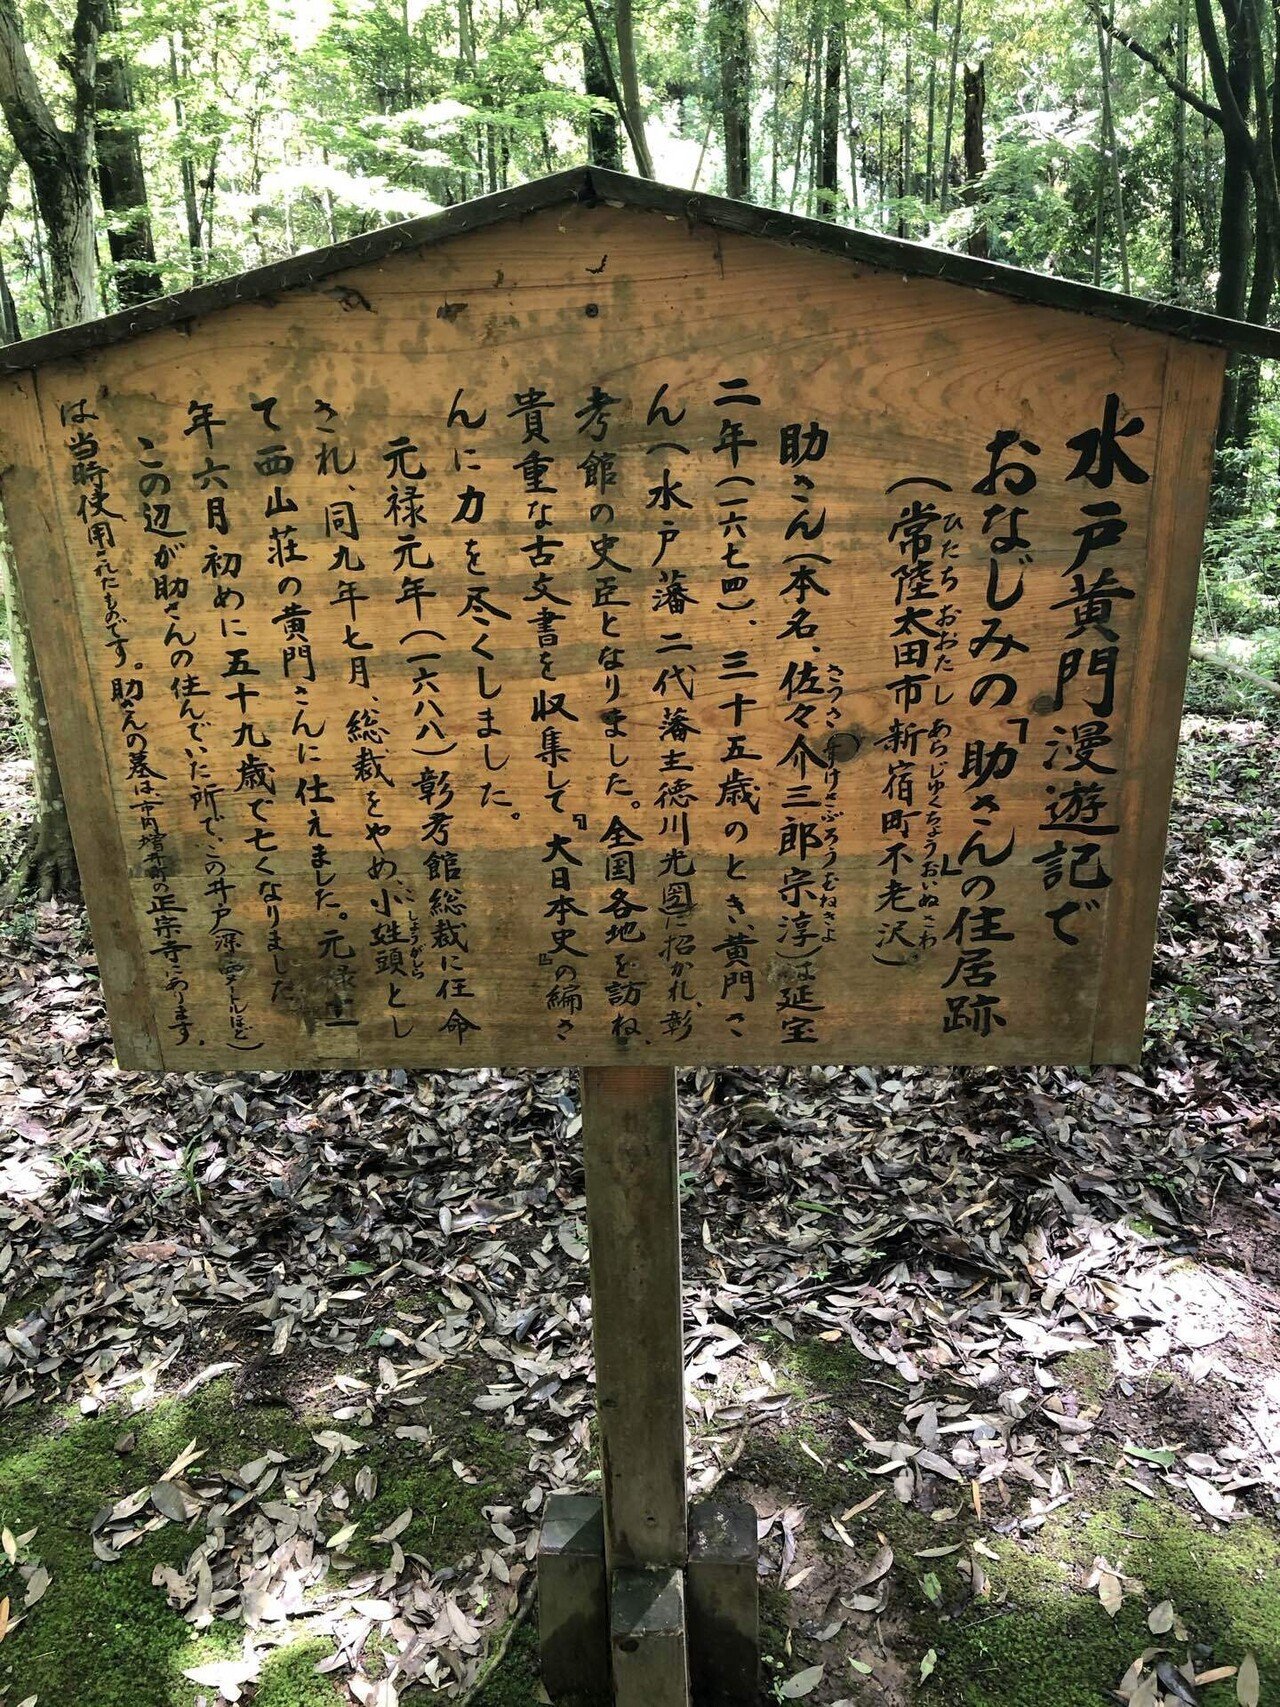 水戸黄門漫遊記で
おなじみの「助さん」の住居跡
（常陸太田市新宿町不老沢）
ひたちおおたし あらじゅくちょうおいぬさわ
助さん（本名、佐々介三郎宗淳）は延宝
さっさすけさぶろうむねきよ
二年（一六七四）、三十五歳のとき、黄門さ
ん（水戸藩二代藩主徳川光圀）に招かれ、彰
考館の史臣となりました。全国各地を訪ね、
貴重な古文書を収集して『大日本史』の編さ
んに力を尽くしました。
元禄元年（一六八八）彰考館総裁に任命
され、同九年七月、総裁をやめ、小姓頭とし
こしょうがしら
て西山荘の黄門さんに仕えました。元禄十一
年六月初めに五十九歳で亡くなりました
この辺が助さんの住んでいた所で、この井戸（深さ四メートルほど）
は当時使用されたものです。助さんの墓は、市内増井町の正宗寺にあります。